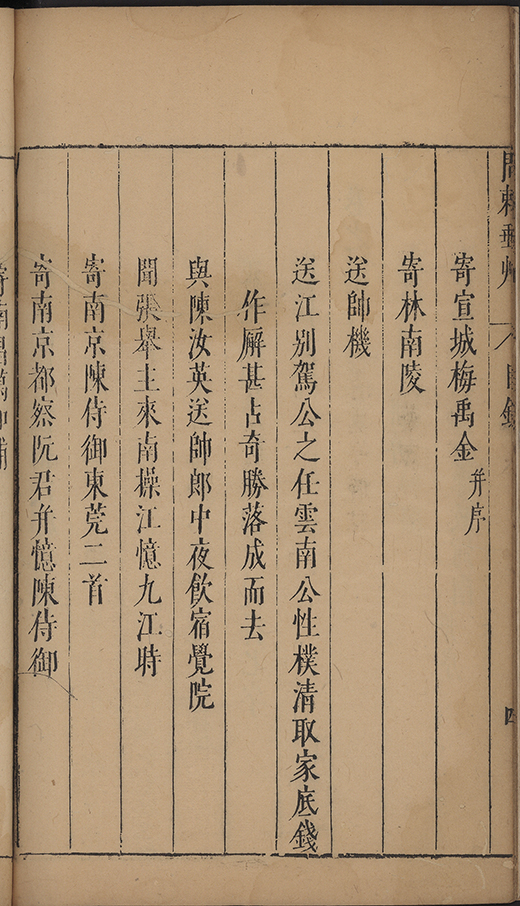 問棘郵艸 目錄 四
寄宣城梅禹金 并序
寄林南陵
送帥機
送江別駕公之任雲南公性樸清取家底錢
作廨甚占奇勝落成而去
與陳汝英送帥郎中夜飲宿覺院
聞張舉主來南操江憶九江時
寄南京陳侍御東莞二首
寄南京都察阮君并憶陳侍御